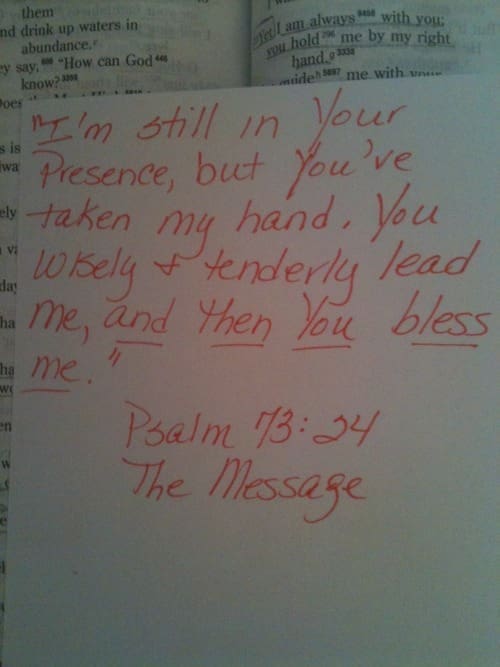 them
nd drink up waters in
abundance.
ey say, 606 "How can God 446
know? 3359
I am always 8458 with you;
you hold 296 me by my right
hand. g 3338
guide h 5697 me with your
"I'm still in Your
Presence, but You've
taken my hand. You
wisely & tenderly lead
me, and then You bless
me."
Psalm 73:24
The Message